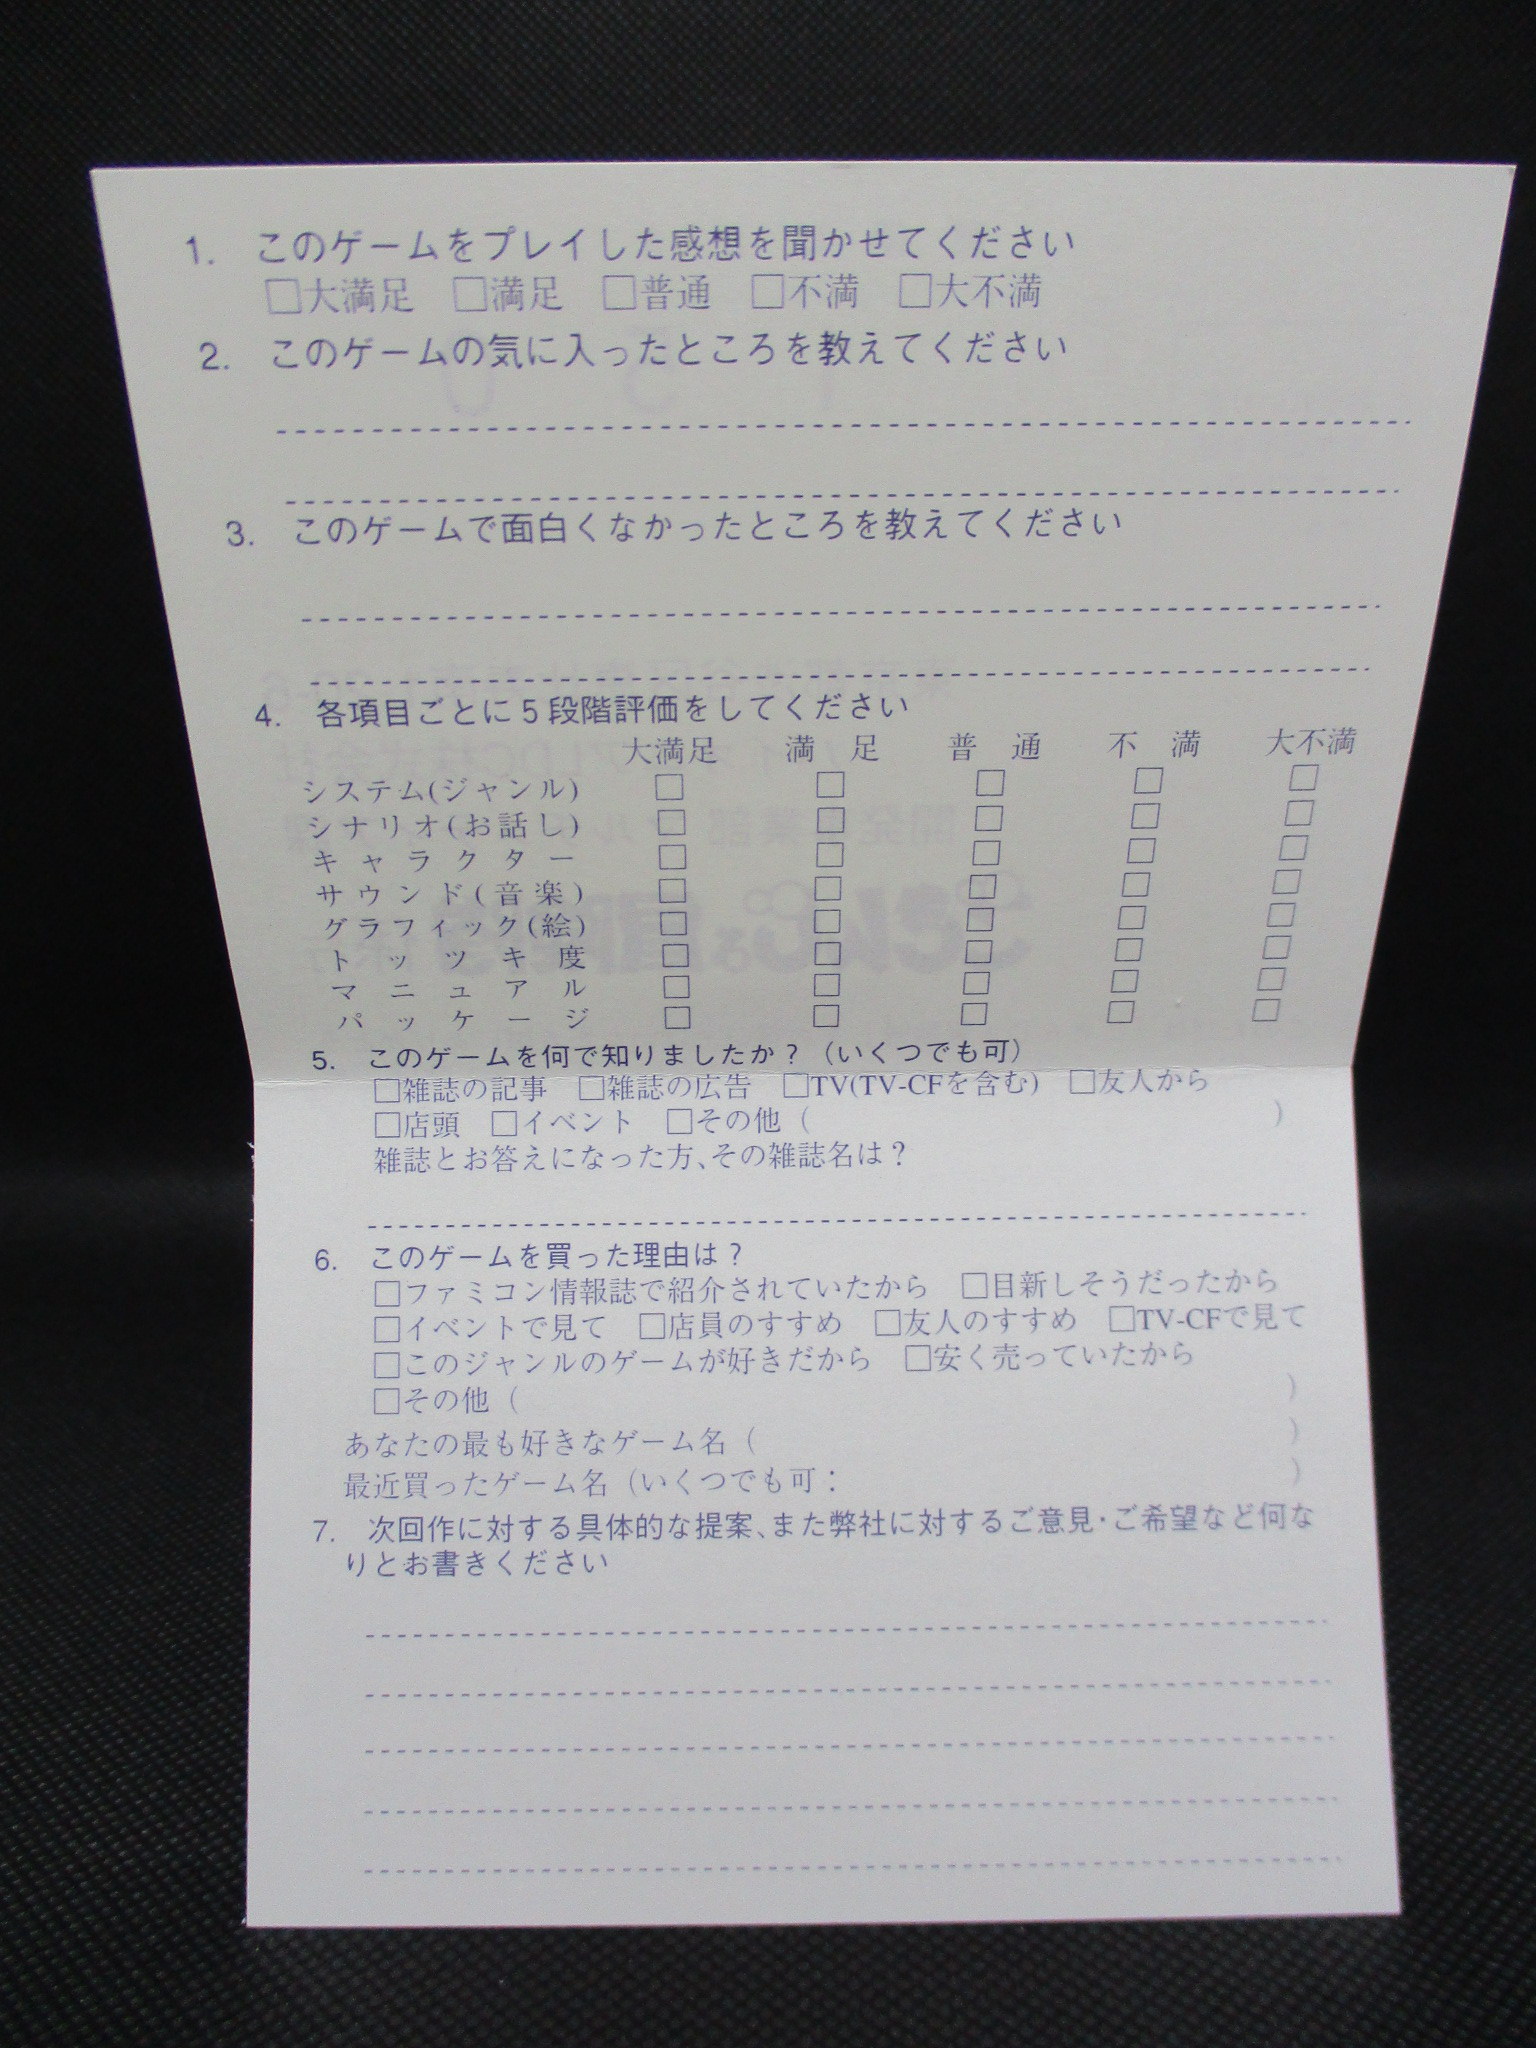 1. このゲームをプレイした感想を聞かせてください
□大満足 □満足 □普通 □不満 □大不満
2. このゲームの気に入ったところを教えてください
3. このゲームで面白くなかったところを教えてください
4. 各項目ごとに5段階評価をしてください
大満足 満足 普通 不満 大不満
システム(ジャンル) □ □ □ □ □
シナリオ(お話し) □ □ □ □ □
キャラクター □ □ □ □ □
サウンド(音楽) □ □ □ □ □
グラフィック(絵) □ □ □ □ □
トッツキ度 □ □ □ □ □
マニュアル □ □ □ □ □
パッケージ □ □ □ □ □
5. このゲームを何で知りましたか？（いくつでも可）
□雑誌の記事 □雑誌の広告 □TV(TV-CFを含む) □友人から
□店頭 □イベント □その他（ ）
雑誌とお答えになった方、その雑誌名は？
6. このゲームを買った理由は？
□ファミコン情報誌で紹介されていたから □目新しそうだったから
□イベントで見て □店員のすすめ □友人のすすめ □TV-CFで見て
□このジャンルのゲームが好きだから □安く売っていたから
□その他（ ）
あなたの最も好きなゲーム名（ ）
最近買ったゲーム名（いくつでも可： ）
7. 次回作に対する具体的な提案、また弊社に対するご意見・ご希望など何な
りとお書きください